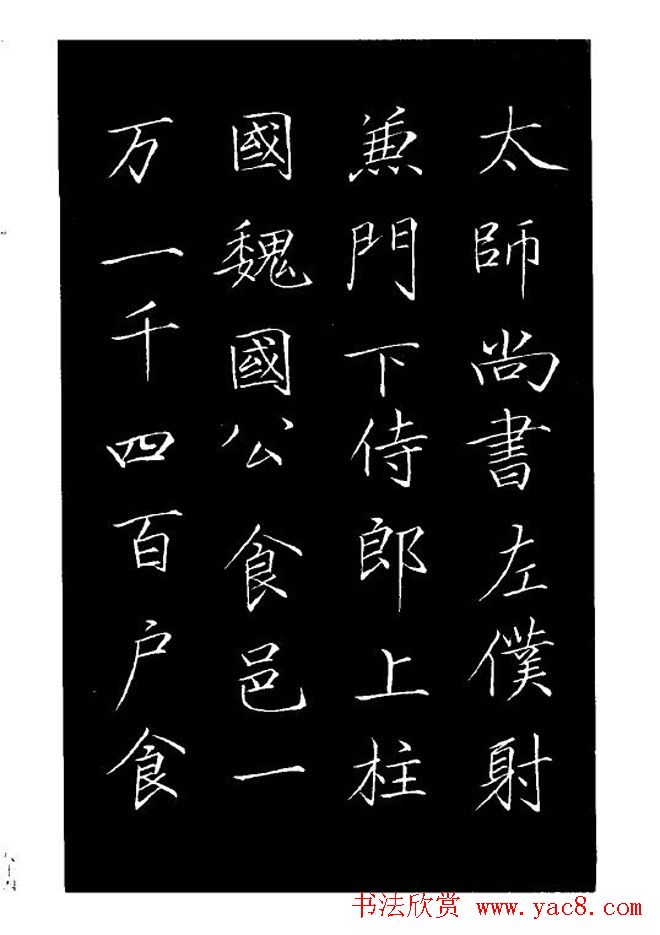 太師尚書左僕射
兼門下侍郎上柱
國魏國公食邑一
万一千四百户食
书法欣赏 www.yac8.com